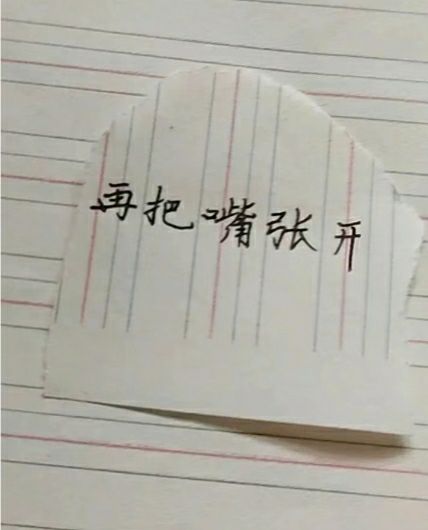 再把嘴张开